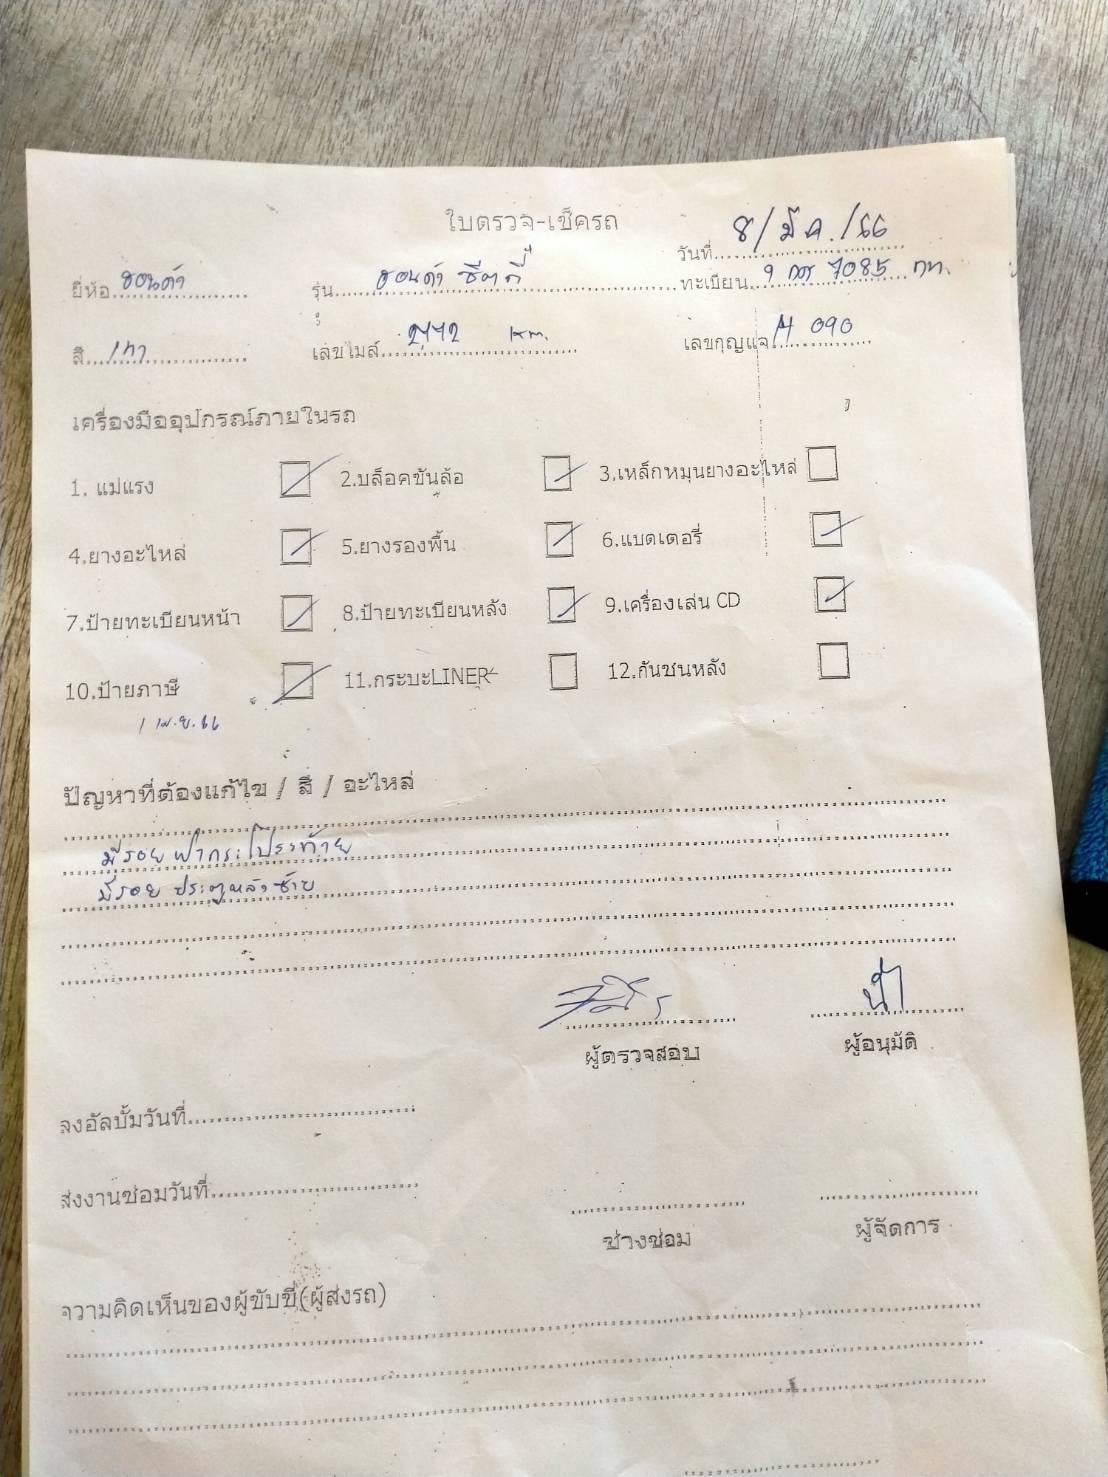 ใบตรวจ-เช็ครถ
วันที่ 8/มี.ค./66
ยี่ห้อ ฮอนด้า รุ่น ฮอนด้า ซีตี้ ทะเบียน 9 กร 7085 กท.
สี เทา เลขไมล์ km. เลขกุญแจ M 090
เครื่องมืออุปกรณ์ภายในรถ
1. แม่แรง 2.บล็อคขันล้อ 3.เหล็กหมุนยางอะไหล่
4.ยางอะไหล่ 5.ยางรองพื้น 6.แบตเตอรี่
7.ป้ายทะเบียนหน้า 8.ป้ายทะเบียนหลัง 9.เครื่องเล่น CD
10.ป้ายภาษี 11.กระบะLINER 12.กันชนหลัง
1 เม.ย. 66
ปัญหาที่ต้องแก้ไข / สี / อะไหล่
มีรอย ฝากระโปรงท้าย
มีรอย ประตูหลังซ้าย
ผู้ตรวจสอบ ผู้อนุมัติ
ลงอัลบั้มวันที่
ส่งงานซ่อมวันที่
ช่างซ่อม ผู้จัดการ
ความคิดเห็นของผู้ขับขี่(ผู้ส่งรถ)